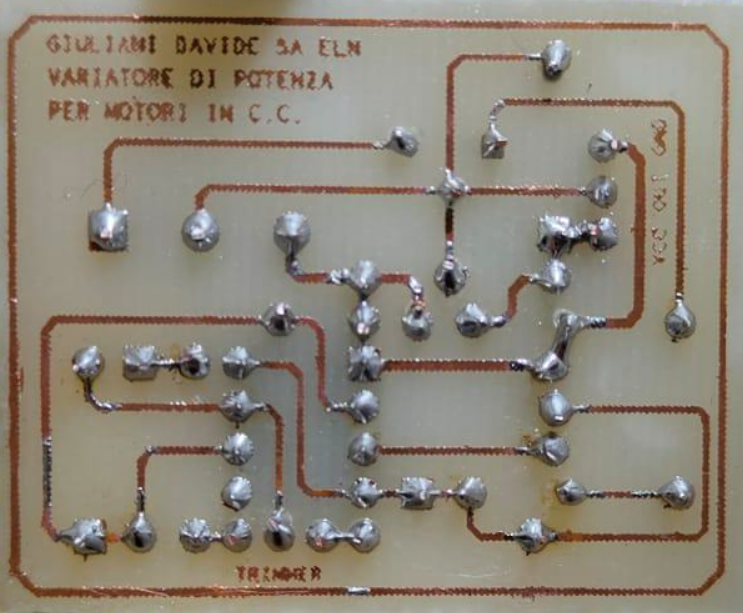 GIULIANI DAVIDE 5A ELN
VARIATORE DI POTENZA
PER MOTORI IN C.C.
GND OUT
TRIMMER